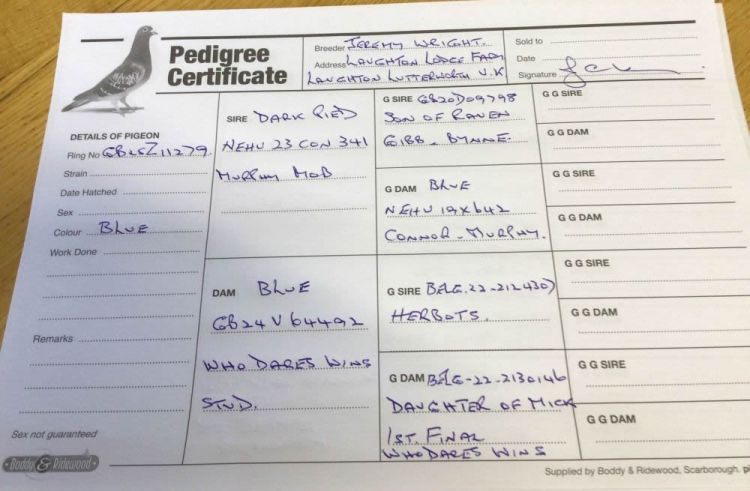 Pedigree
Certificate
Breeder JEREMY WRIGHT.
Address LAUGHTON LODGE FARM
LAUGHTON LUTTERWORTH U.K
Sold to
Date
Signature
DETAILS OF PIGEON
Ring No GB25Z11279
Strain
Date Hatched
Sex
Colour BLUE
Work Done
Remarks
Sex not guaranteed
Boddy & Ridewood
SIRE DARK PIED
NEHU 23 CON 341
MURPHY MOB
DAM BLUE
GB24V64492
WHO DARES WINS
STUD.
G SIRE GB20D09798
SON OF RAVEN
GIBB - BYNNE.
G DAM BLUE
NEHU 19X642
CONNOR - MURPHY.
G SIRE BELG.22-212430)
HERBOTS.
G DAM BELG-22-2130146
DAUGHTER OF MICK
1ST. FINAL
WHO DARES WINS
G G SIRE
G G DAM
G G SIRE
G G DAM
G G SIRE
G G DAM
G G SIRE
G G DAM
Supplied by Boddy & Ridewood, Scarborough.